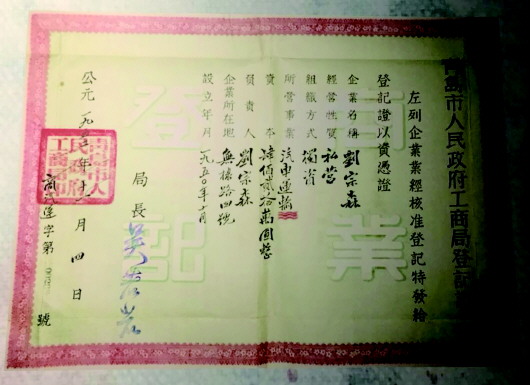 青島市人民政府工商局登記
左列企業業經核准登記特發給
登記證以資憑證
企業名稱 劉宗森
經營性質 私營
組織方式 獨資
所營事業 汽車運輸
資本 肆佰貳拾萬圓整
負責人 劉宗森
企業所在地 無棣路四號
設立年月 一九五〇年 月
局長
公元一九五 年十 月四日
商 字第 號
商業
登記
青島市人民政府工商局印